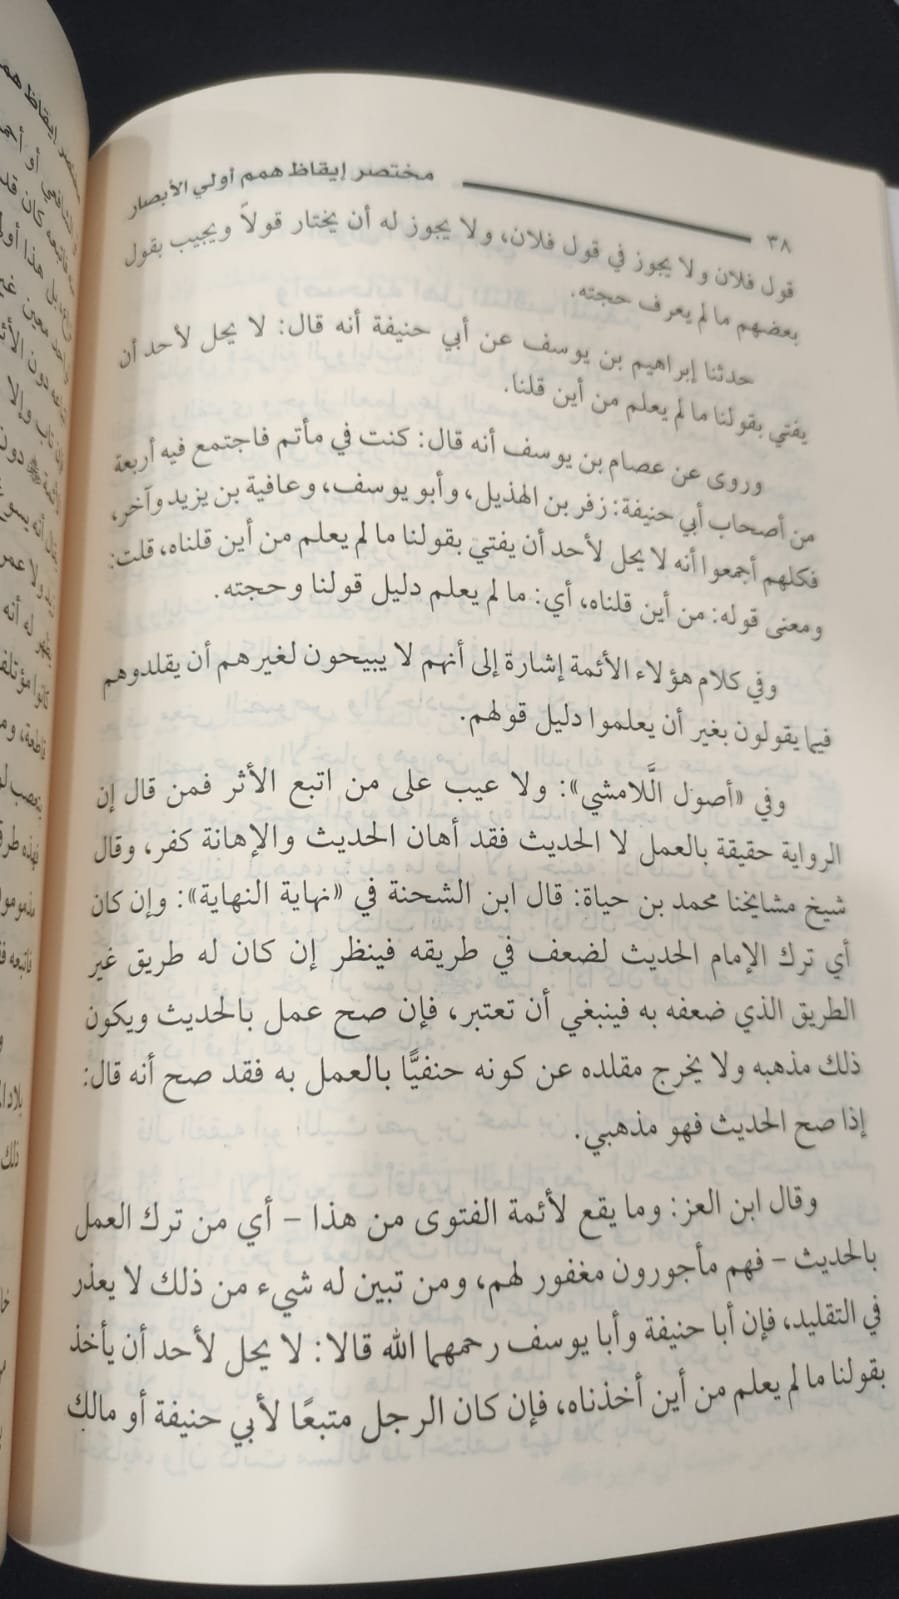 ٣٨
مختصر إيقاظ همم أولي الأبصار
قول فلان ولا يجوز في قول فلان، ولا يجوز له أن يختار قولاً ويجيب بقول
بعضهم ما لم يعرف حجته.
حدثنا إبراهيم بن يوسف عن أبي حنيفة أنه قال: لا يحل لأحد أن
يفتي بقولنا ما لم يعلم من أين قلنا.
وروى عن عصام بن يوسف أنه قال: كنت في مأتم فاجتمع فيه أربعة
من أصحاب أبي حنيفة: زفر بن الهذيل، وأبو يوسف، وعافية بن يزيد وآخر،
فكلهم أجمعوا أنه لا يحل لأحد أن يفتي بقولنا ما لم يعلم من أين قلناه، قلت:
ومعنى قوله: من أين قلناه، أي: ما لم يعلم دليل قولنا وحجته.
وفي كلام هؤلاء الأئمة إشارة إلى أنهم لا يبيحون لغيرهم أن يقلدوهم
فيما يقولون بغير أن يعلموا دليل قولهم.
وفي «أصول الَّلامشي»: ولا عيب على من اتبع الأثر فمن قال إن
الرواية حقيقة بالعمل لا الحديث فقد أهان الحديث والإهانة كفر، وقال
شيخ مشايخنا محمد بن حياة: قال ابن الشحنة في «نهاية النهاية»: وإن كان
أي ترك الإمام الحديث لضعف في طريقه فينظر إن كان له طريق غير
الطريق الذي ضعفه به فينبغي أن تعتبر، فإن صح عمل بالحديث ويكون
ذلك مذهبه ولا يخرج مقلده عن كونه حنفيًّا بالعمل به فقد صح أنه قال:
إذا صح الحديث فهو مذهبي.
وقال ابن العز: وما يقع لأئمة الفتوى من هذا – أي من ترك العمل
بالحديث – فهم مأجورون مغفور لهم، ومن تبين له شيء من ذلك لا يعذر
في التقليد، فإن أبا حنيفة وأبا يوسف رحمهما الله قالا: لا يحل لأحد أن يأخذ
بقولنا ما لم يعلم من أين أخذناه، فإن كان الرجل متبعًا لأبي حنيفة أو مالك